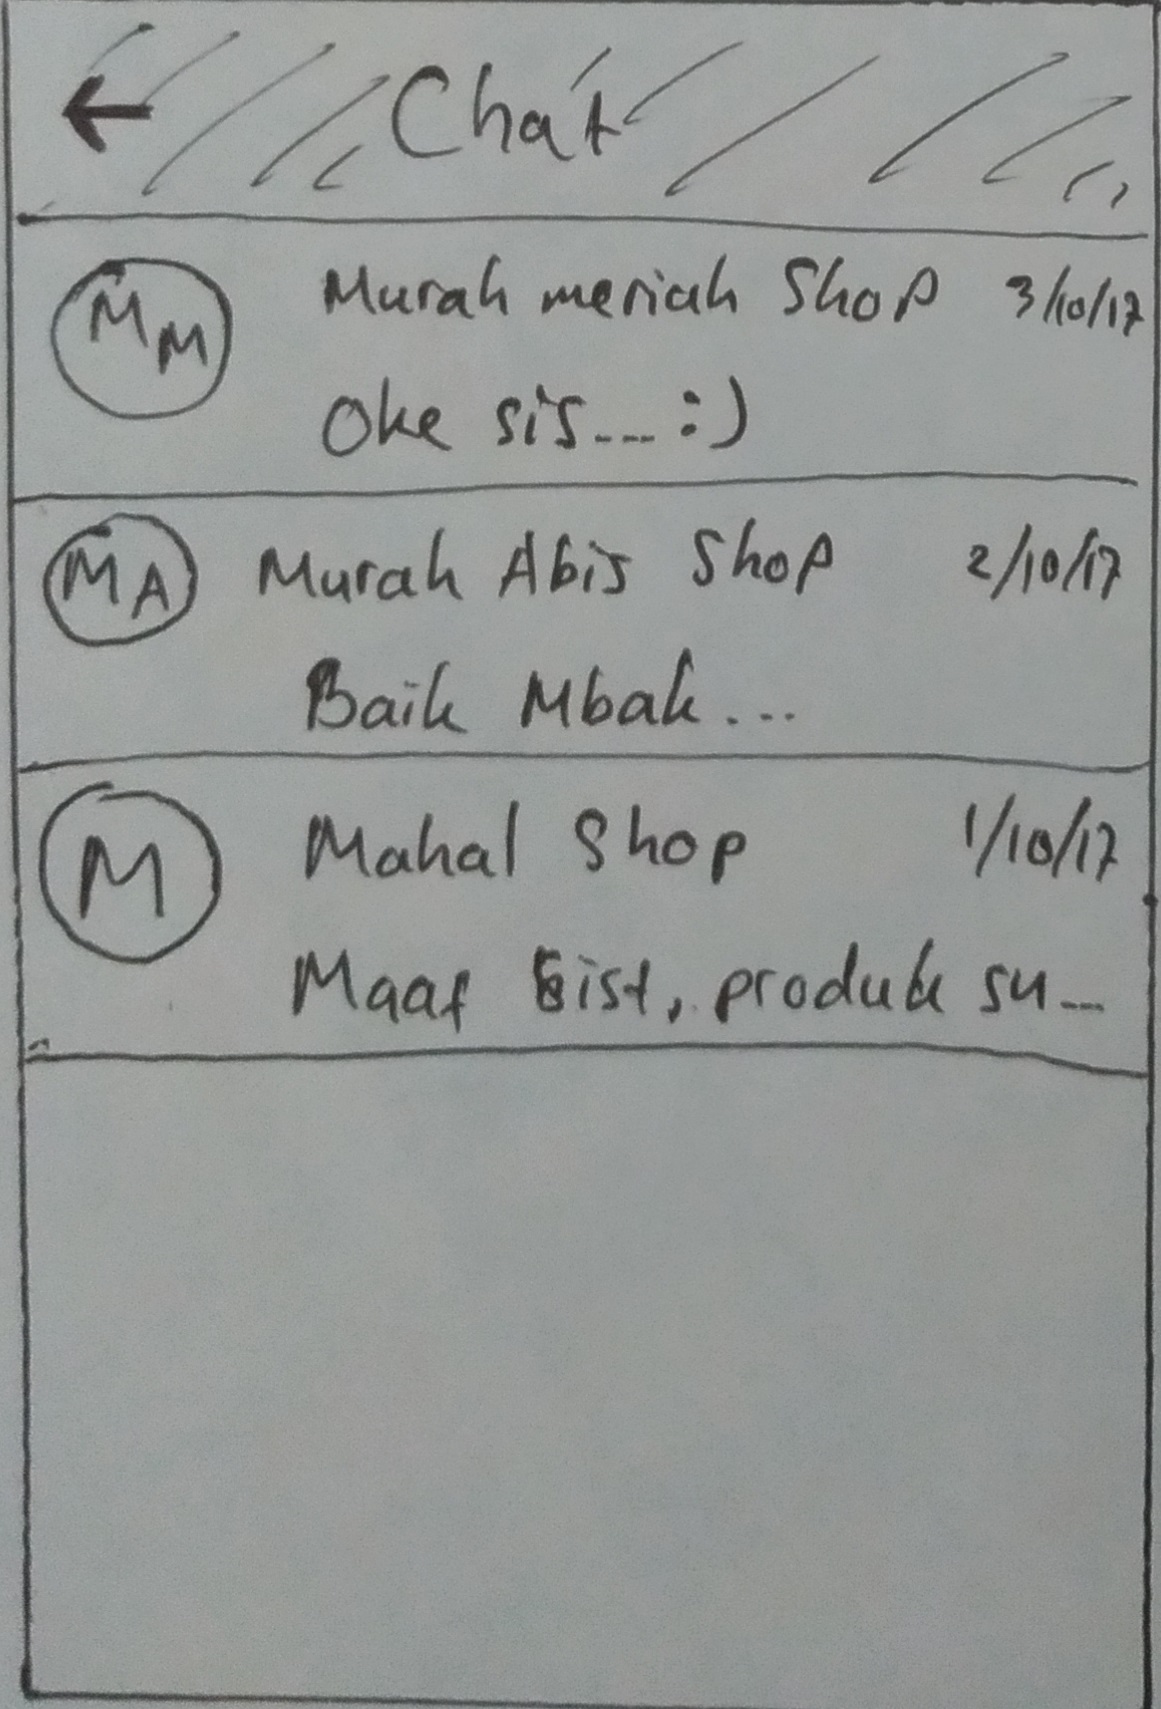 ← Chat
MM Murah meriah Shop 3/10/17
Oke sis... :)
MA Murah Abis Shop 2/10/17
Baik Mbak...
M Mahal Shop 1/10/17
Maaf Sist, produk su...